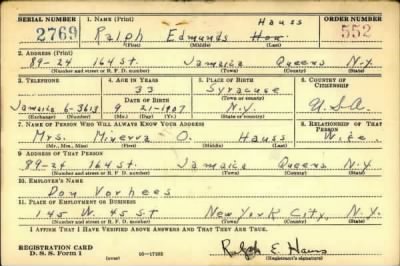 SERIAL NUMBER 1. NAME (Print) ORDER NUMBER
Hauss
2769 Ralph Edmunds 552
(First) (Middle) (Last)
2. ADDRESS (Print)
89-24 164 st. Jamaica Queens N.Y.
(Number and street or R. F. D. number) (Town) (County) (State)
3. TELEPHONE 4. AGE IN YEARS 5. PLACE OF BIRTH 6. COUNTRY OF CITIZENSHIP
33 Syracuse
DATE OF BIRTH (Town or county)
Jamaica 6-3613 9 21-1907 N.Y. USA
(Exchange) (Number) (Mo.) (Day) (Yr.) (State or country)
7. NAME OF PERSON WHO WILL ALWAYS KNOW YOUR ADDRESS 8. RELATIONSHIP OF THAT PERSON
Mrs. Minerva O. Hauss Wife
(Mr., Mrs., Miss) (First) (Middle) (Last)
9. ADDRESS OF THAT PERSON
89-24 164 st. Jamaica Queens N.Y.
(Number and street or R. F. D. number) (Town) (County) (State)
10. EMPLOYER'S NAME
Don Vorhees
11. PLACE OF EMPLOYMENT OR BUSINESS
145 W. 45 St New York City, N.Y.
(Number and street or R. F. D. number) (Town) (County) (State)
I AFFIRM THAT I HAVE VERIFIED ABOVE ANSWERS AND THAT THEY ARE TRUE.
REGISTRATION CARD Ralph E. Hauss
D. S. S. Form 1 (over) (Registrant's signature)